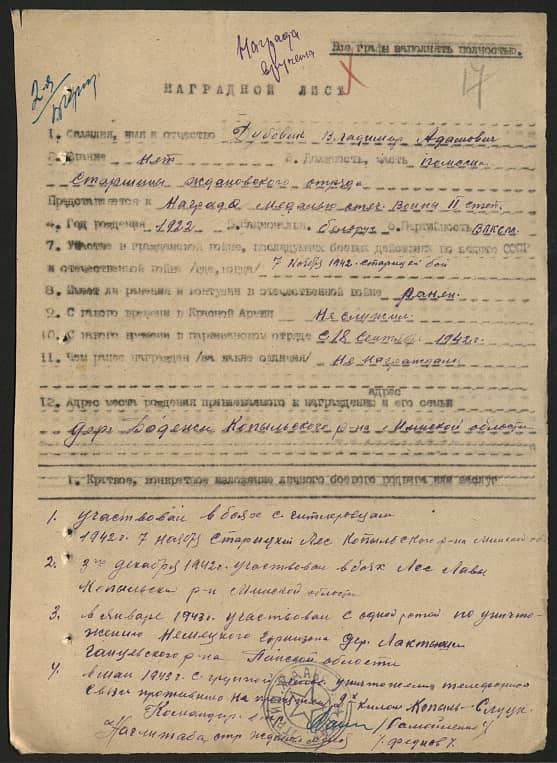 Награда
вручена
Все графы заполнять полностью.
17
2-я
НАГРАДНОЙ ЛИСТ
1. Фамилия, имя и отчество Дубовик Владимир Адамович
2. Звание Нет 3. Должность, часть Помощн.
Старшины Ждановского отряда
Представляется к Награде Медалью отеч. Война II степ.
4. Год рождения 1922 5. Национальн. белорус 6. Партийность ВЛКСМ
7. Участие в гражданской войне, последующих боевых действиях по защите СССР
и отечественной войне /где, когда/ 7 Ноября 1942 Старицкий бой
8. Имеет ли ранения и контузии в отечественной войне Ранен.
9. С какого времени в Красной Армии Не служил.
10. С какого времени в партизанском отряде С 18 Сентяб. 1942 г.
11. Чем ранее награжден /за какие отличия/ Не награждался
адрес
12. Адрес места рождения призываемого к награждению и его семьи
дер. Копыльского р-на Минской области
1. Краткое, конкретное изложение личного боевого подвига или заслуг
1. участвовал в боях с гитлеровцами
1942 г. 7 Ноября Старицкий Лес Копыльского р-на Минской об.
2. декабря 1942 г. участвовал в боях Лес Лава
Копыльский р-н Минской области
3. в январе 1943 г. участвовал с одной ротой по уничто-
жению Немецкого Гарнизона дер.
Ганцевского р-на Пинской области
4. в мая 1943 г. с группой уничтожении телефонной
связи на протяжении килом Копыль-Слуцк.
Командир
Нач. штаба отр. Жданова